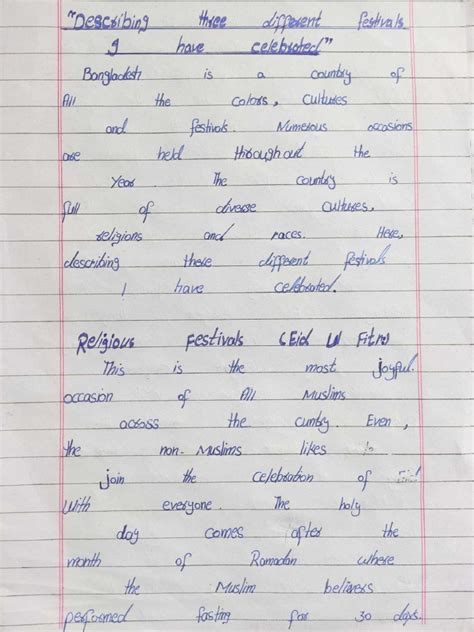 "Describing three different festivals
I have celebrated"
Bangladesh is a country of
All the colors, cultures
and festivals. Numerous occasions
are held throughout the
Year. The country is
full of diverse cultures,
religions and races. Here,
describing there different festivals
I have celebrated.
Religious Festivals (Eid Ul Fitr)
This is the most joyful
occasion of All Muslims
across the cuntry. Even,
the non-Muslims likes to
join the celebration of Eid
With everyone. The holy
day comes after the
month of Ramadan where
the Muslim believers
performed fasting for 30 days.